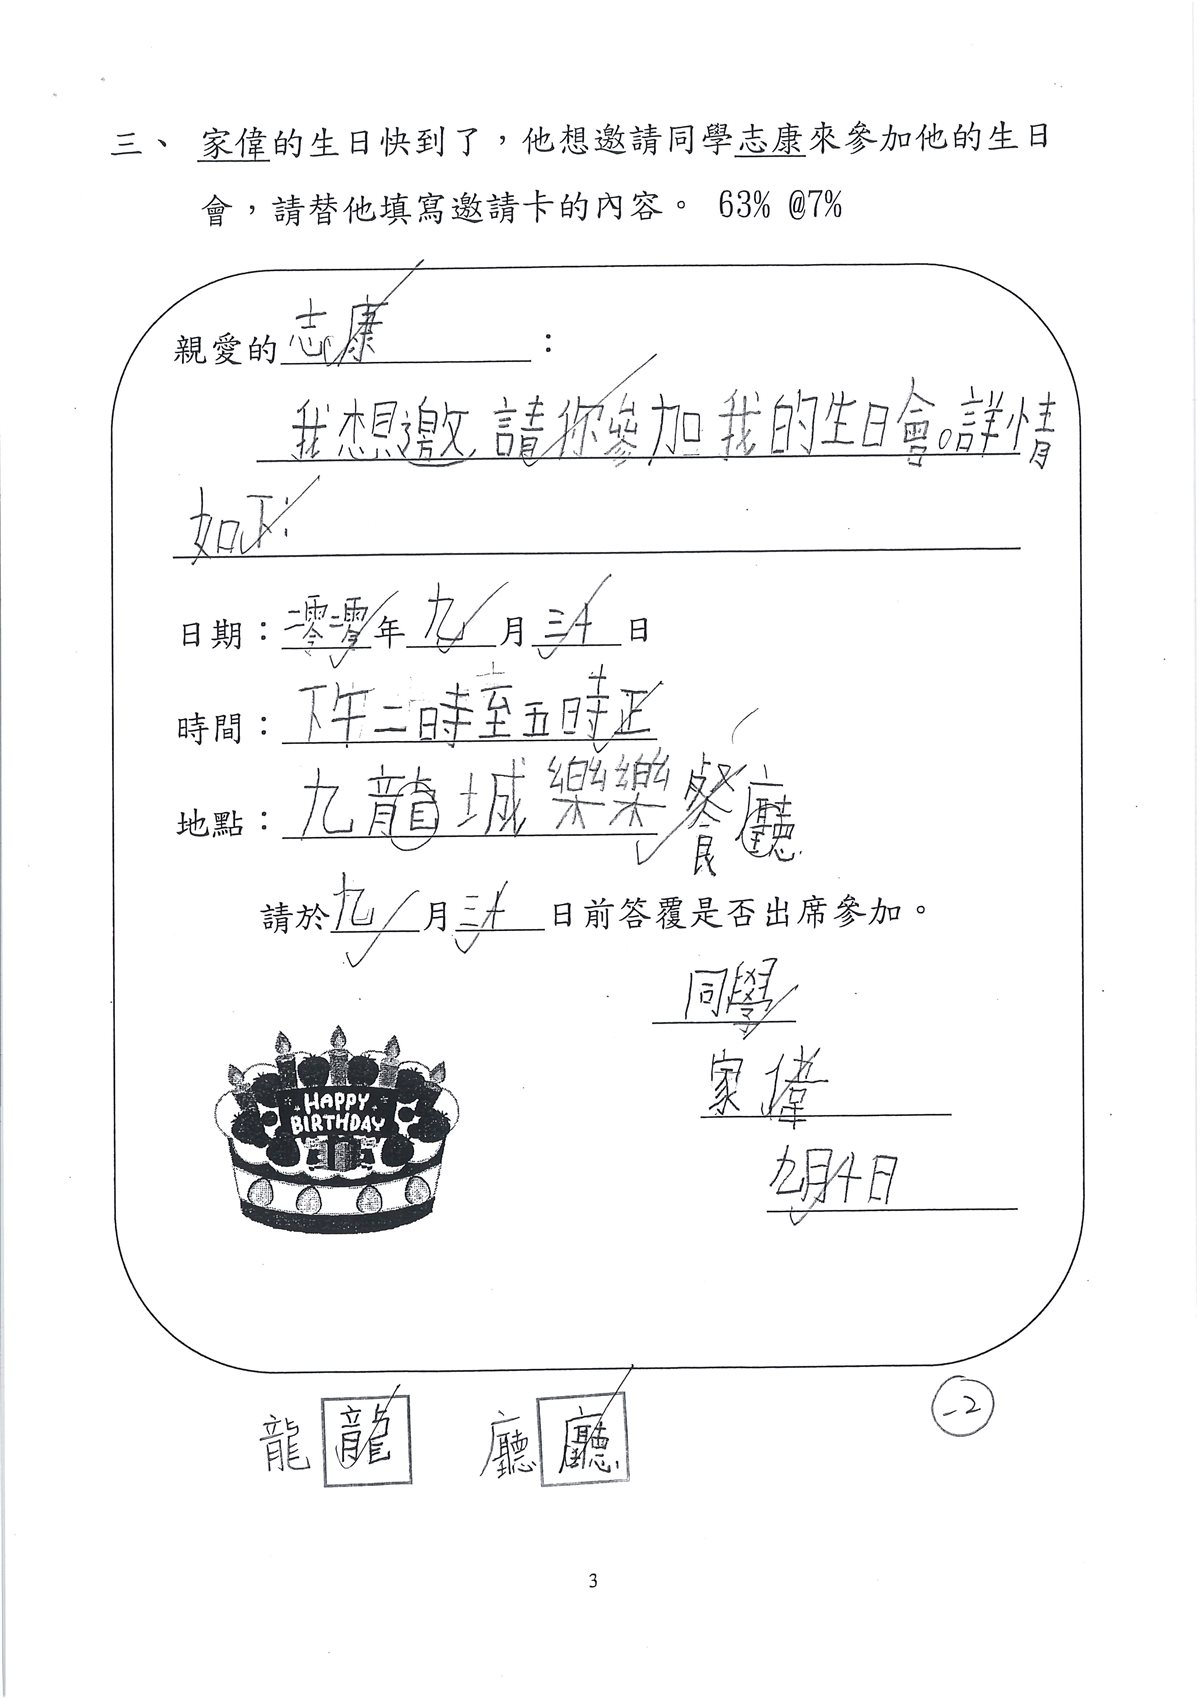 三、 家偉的生日快到了，他想邀請同學志康來參加他的生日
會，請替他填寫邀請卡的內容。 63% @7%
親愛的志康：
我想邀請你參加我的生日會。詳情
如下：
日期：二零二零年九月三十日
時間：下午二時至五時正
地點：九龍城樂樂餐廳
請於九月三十日前答覆是否出席參加。
同學
家偉
九月十日
HAPPY
BIRTHDAY
龍 龍 廳 廳
-2
3